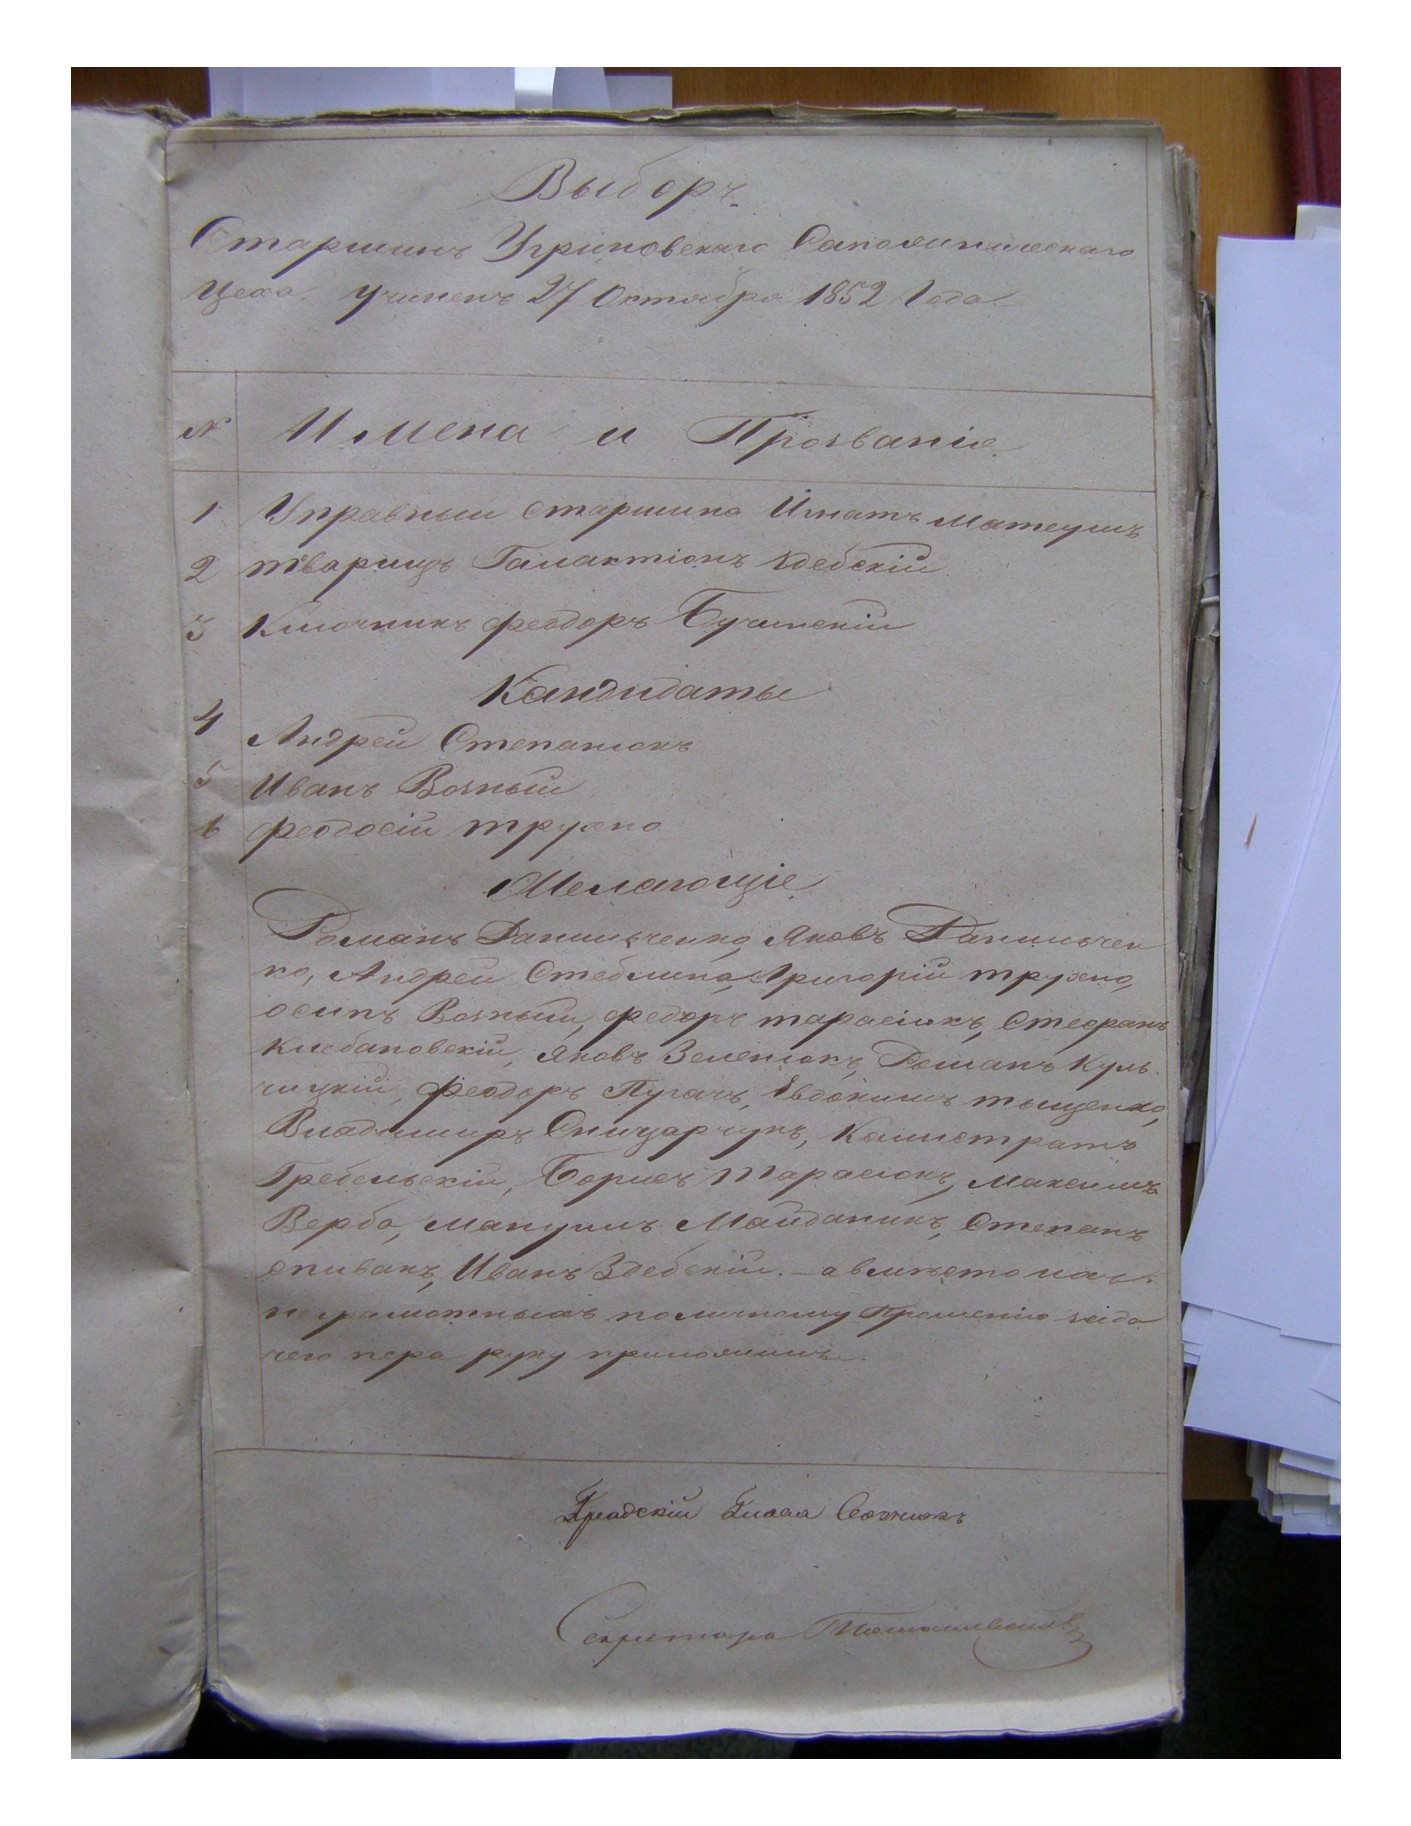 Выборъ
Старшинъ Угриновскаго Сапожническаго
Цеха. Учиненъ 27 Октября 1852 Года
№ Имена и Прозванія
1 Управный старшина Игнатъ Матеушъ
2 тварищъ Галактіонъ Здебскій
3 Ключникъ Феодоръ Бучинскій
Кандидаты
4 Андрей Степанюкъ
5 Иванъ Возный
6 Феодосій трухно
Желающіе
Романъ Данильченко, Яковъ Данильчен
ко, Андрей Стеблина, Григорій трухно,
осипъ Возный, Федоръ тарасюкъ, Стефанъ
Клебановскій, Яковъ Зеленюкъ, Романъ Куль
чицкій, Феодоръ Пугачъ, Евдокимъ тыщенко,
Владимиръ Сницарчукъ, Калистратъ
Гребельскій, Борисъ тарасюкъ, Максимъ
Верба, Мануилъ Майданикъ, Степанъ
спивакъ, Иванъ Здебскій. — а вместо
неграмотныхъ по личному Прошению
чего пера руку приложилъ.
Градскій Глава
Секретарь